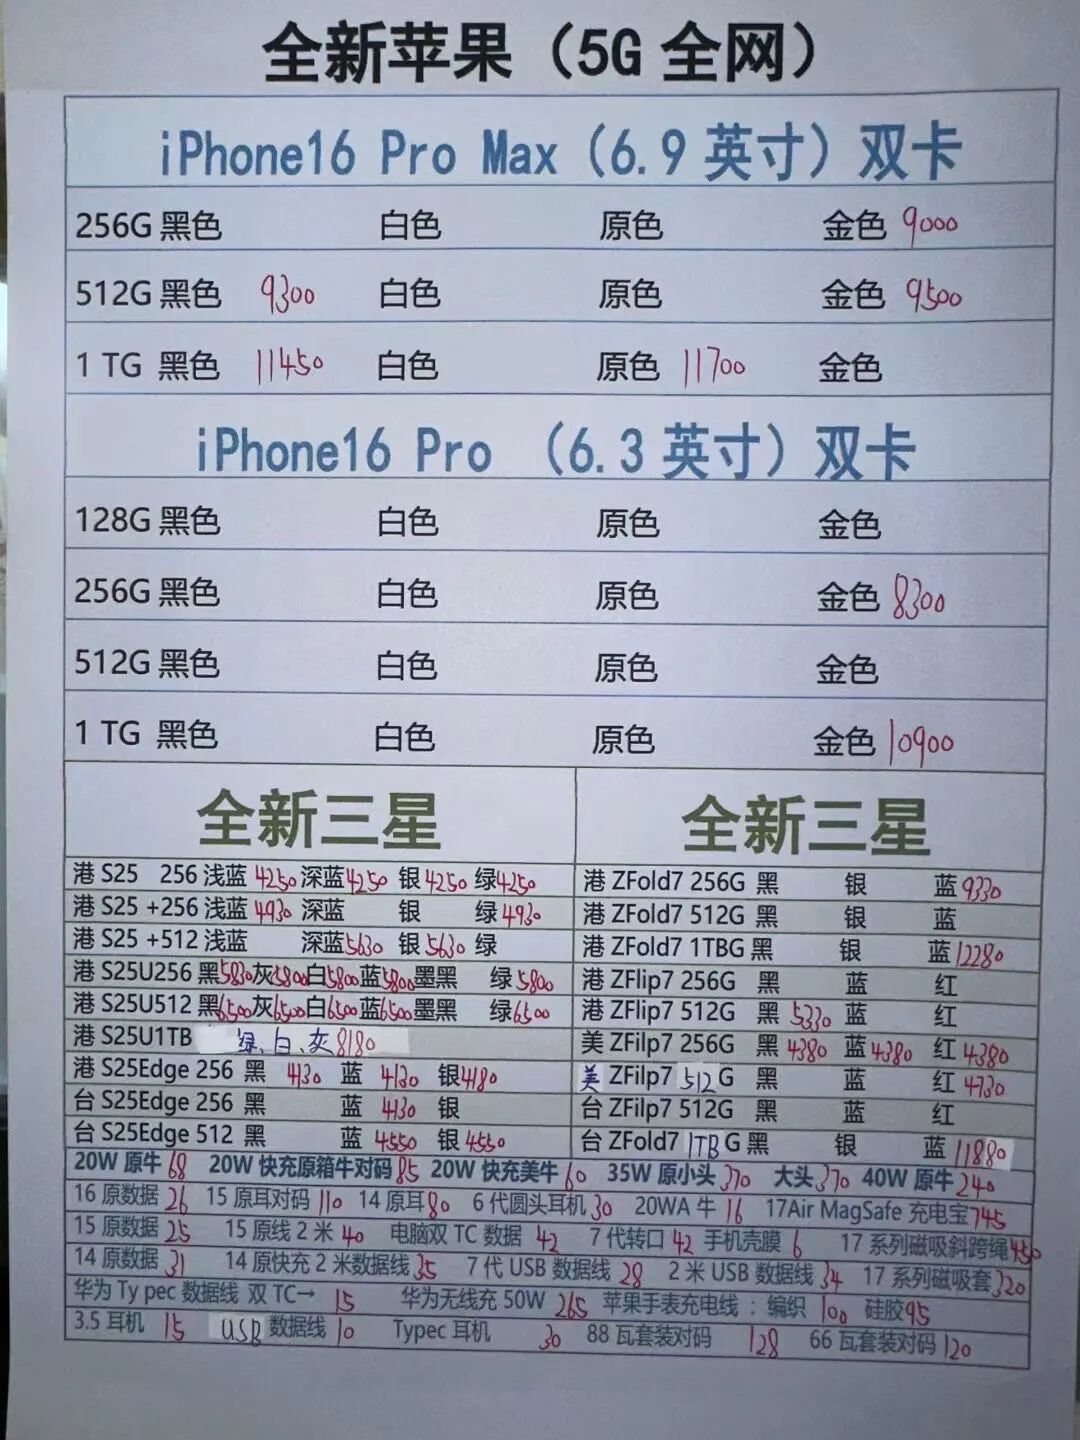 全新苹果（5G 全网）
iPhone16 Pro Max（6.9 英寸）双卡
256G 黑色 白色 原色 金色 9000
512G 黑色 9300 白色 原色 金色 9500
1 TG 黑色 11450 白色 原色 11700 金色
iPhone16 Pro （6.3 英寸）双卡
128G 黑色 白色 原色 金色
256G 黑色 白色 原色 金色 8300
512G 黑色 白色 原色 金色
1 TG 黑色 白色 原色 金色 10900
全新三星
港 S25 256 浅蓝 4250 深蓝 4250 银 4250 绿 4250
港 S25 +256 浅蓝 4930 深蓝 银 绿 4930
港 S25 +512 浅蓝 深蓝 5630 银 5630 绿
港 S25U256 黑 5830 灰 5800 白 5800 蓝 5800 墨黑 绿 5800
港 S25U512 黑 6500 灰 6500 白 6500 蓝 6500 墨黑 绿 6500
港 S25U1TB 绿、白、灰 8180
港 S25Edge 256 黑 4130 蓝 4130 银 4180
台 S25Edge 256 黑 蓝 4130 银
台 S25Edge 512 黑 蓝 4550 银 4550
全新三星
港 ZFold7 256G 黑 银 蓝 9330
港 ZFold7 512G 黑 银 蓝
港 ZFold7 1TBG 黑 银 蓝 12280
港 ZFlip7 256G 黑 蓝 红
港 ZFlip7 512G 黑 5330 蓝 红
美 ZFilp7 256G 黑 4380 蓝 4380 红 4380
美 ZFilp7 512 G 黑 蓝 红 4730
台 ZFilp7 512G 黑 蓝 红
台 ZFold7 1TB G 黑 银 蓝 11880
20W 原牛 68 20W 快充原箱牛对码 85 20W 快充美牛 60 35W 原小头 370 大头 370 40W 原牛 240
16 原数据 26 15 原耳对码 110 14 原耳 80 6 代圆头耳机 30 20WA 牛 16 17Air MagSafe 充电宝 745
15 原数据 25 15 原线 2 米 40 电脑双 TC 数据 42 7 代转口 42 手机壳膜 6 17 系列磁吸斜跨绳 450
14 原数据 31 14 原快充 2 米数据线 35 7 代 USB 数据线 28 2 米 USB 数据线 34 17 系列磁吸套 320
华为 Ty pec 数据线 双 TC→ 15 华为无线充 50W 265 苹果手表充电线 ：编织 100 硅胶 95
3.5 耳机 15 USB 数据线 10 Typec 耳机 30 88 瓦套装对码 128 66 瓦套装对码 120